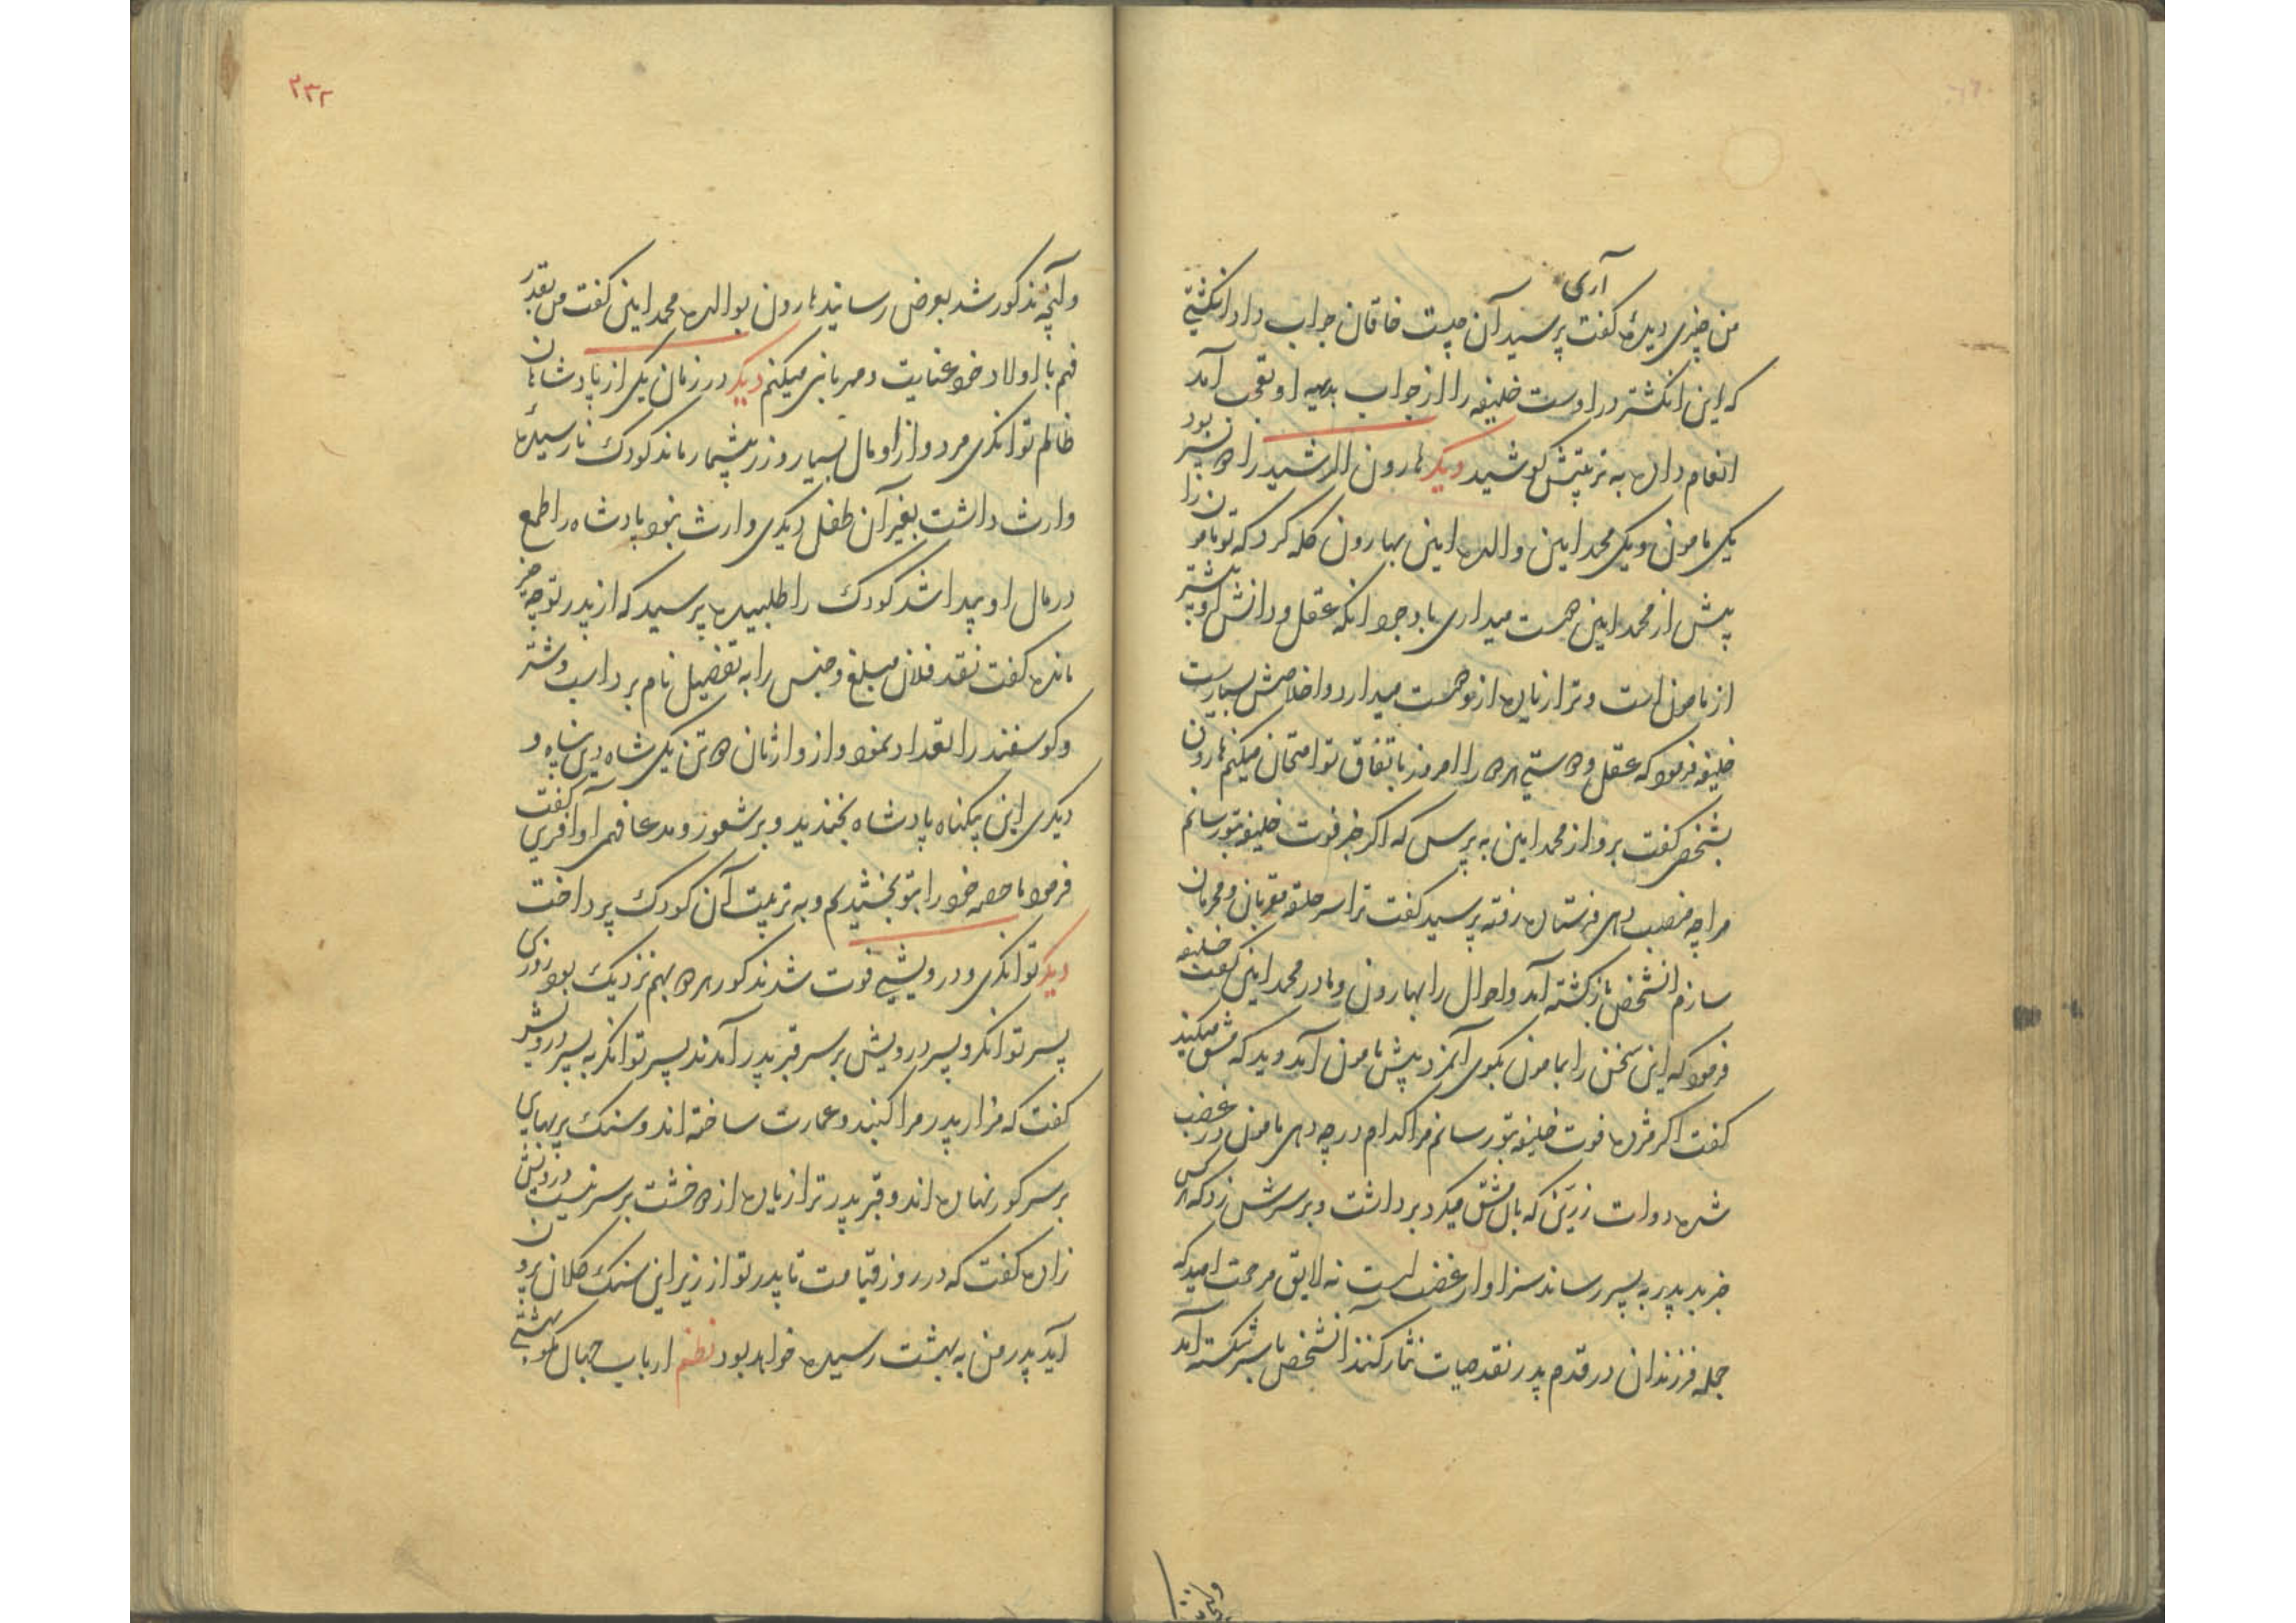 آری
من چیزی دیده گفت پرسید آن چیست خاقان جواب داد انکشتی
که این انکشتر در اوست خلیفه را از جواب بدیهه او تعجب آمد
انعام داده به تربیتش کوشید دیکر هارون الرشید را دو پسر بود
یکی مامون و یکی محمد امین والده امین بهارون کله کرد که تو مامون را
پیش از محمد امین دوست میداری با وجود انکه عقل و دانش او بیشتر
از مامون است و ترا زیاده از و دوست میدارد و اخلاصش بسیارست
خلیفه فرمود که عقل و دوستی هر دو را امروز باتفاق تو امتحان میکنم هارون
بشخصی کفت برو از محمد امین به پرس که اکر خبر فوت خلیفه بتو رسانم
مرا چه منصب دهی فرستاده رفته پرسید کفت ترا سر حلقه مقربان و محرمان
سازم انشخص باز کشته آمد و احوال را بهارون و مادر محمد امین کفت خلیفه
فرمود که این سخن را بمامون بکوی آنمرد پیش مامون آمد و دید که مشق میکند
کفت اکر مژده فوت خلیفه بتو رسانم مرا کدام درجه دهی مامون در غضب
شده دوات زرین که بان مشق میکرد برداشت و بر سرش زد که هر کس
خبر بد پدر به پسر رساند سزاوار غضب است نه لایق مرحمت امید که
جمله فرزندان در قدم پدر نقد حیات نثار کنند آنشخص با سر شکسته آمد
۲۳۲
و آنچه مذکور شد بعرض رسانید هارون بوالده محمد امین کفت من بقدر
فهم با اولاد خود عنایت و مهربانی میکنم دیکر در زمان یکی از پادشاهان
ظالم توانکری مرد و از او مال بسیار و زر بیشمار ماند کودک نارسیده
وارث داشت بغیر آن طفل دیکری وارث نبود پادشاه را طمع
در مال او پیدا شد کودک را طلبیده پرسید که از پدر تو چه چیز
مانده کفت نقد فلان مبلغ و جنس را به تفصیل نام برد اسب و شتر
و کوسفند را تعداد نمود و از وارثان دو تن یکی شاه دین پناه و
دیکری این بیکناه پادشاه بخندید و بر شعور و مدعا فهمی او آفرین کفت
فرمود ما حصه خود را بتو بخشیدیم و به تربیت آن کودک پرداخت
دیکر توانکری و درویشی فوت شدند کور هر دو بهم نزدیک بود روزی
پسر توانکر و پسر درویش بر سر قبر پدر آمدند پسر توانکر به پسر درویش
کفت که مزار پدر مرا کنبد و عمارت ساخته اند و سنک پر بهای
بر سر کور نهاده اند و قبر پدر ترا زیاده از دو خشت بر سر نیست درویش
زاده کفت که در روز قیامت تا پدر تو از زیر این سنک کلان برون
آید پدر من به بهشت رسیده خواهد بود نظم ارباب